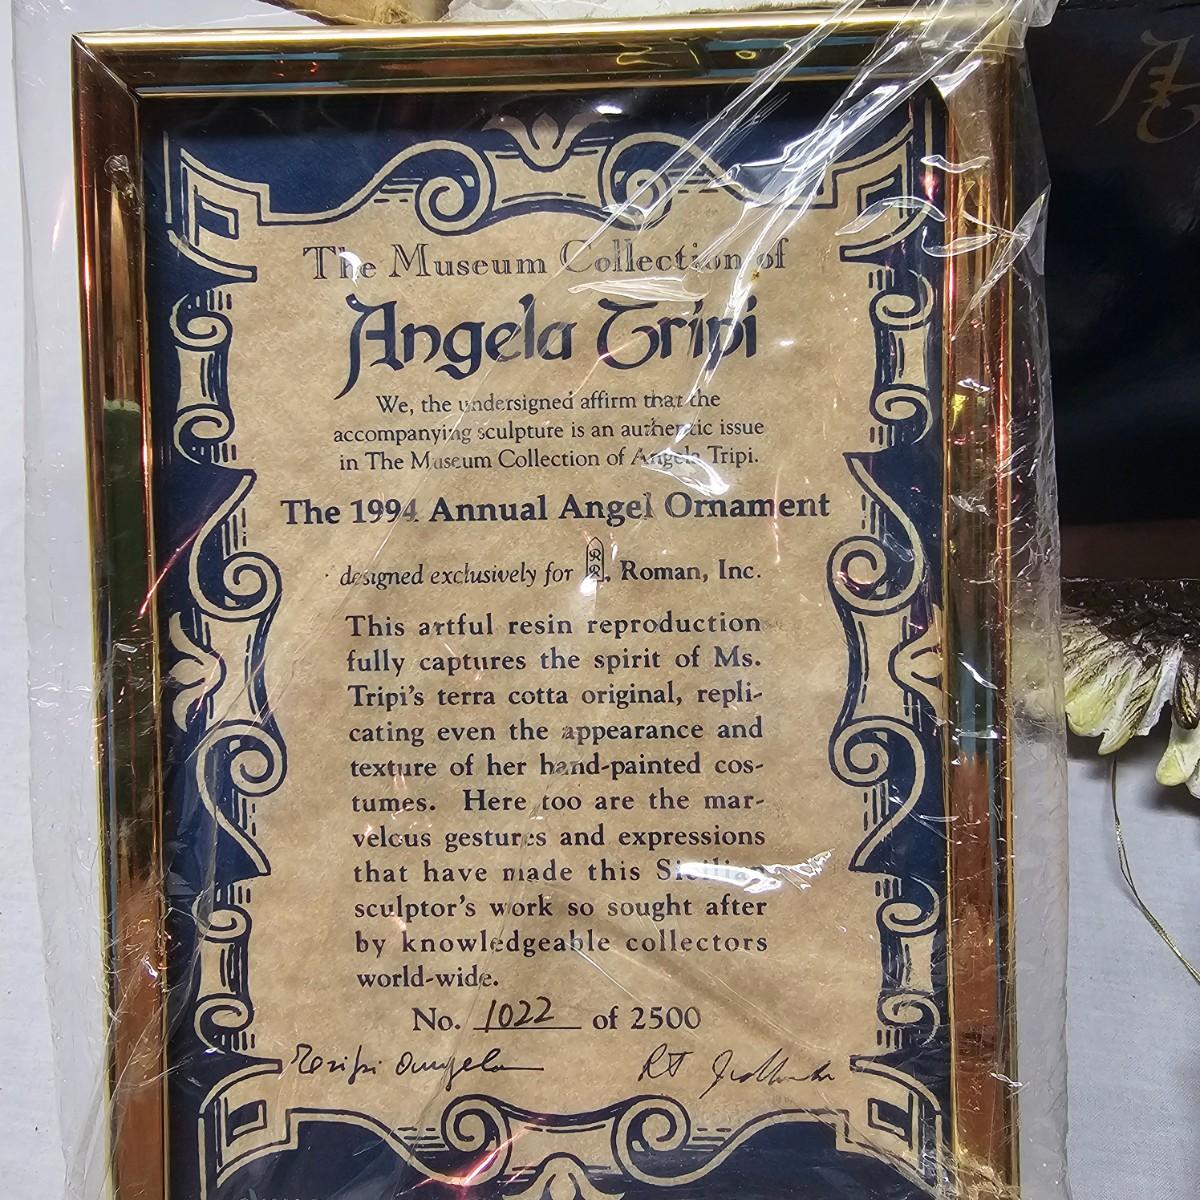 The Museum Collection of
Angela Tripi
We, the undersigned affirm that the
accompanying sculpture is an authentic issue
in The Museum Collection of Angela Tripi.
The 1994 Annual Angel Ornament
designed exclusively for RR. Roman, Inc.
This artful resin reproduction
fully captures the spirit of Ms.
Tripi's terra cotta original, repli-
cating even the appearance and
texture of her hand-painted cos-
tumes. Here too are the mar-
velous gestures and expressions
that have made this Sicilian
sculptor's work so sought after
by knowledgeable collectors
world-wide.
No. 1022 of 2500
Tripi Angela